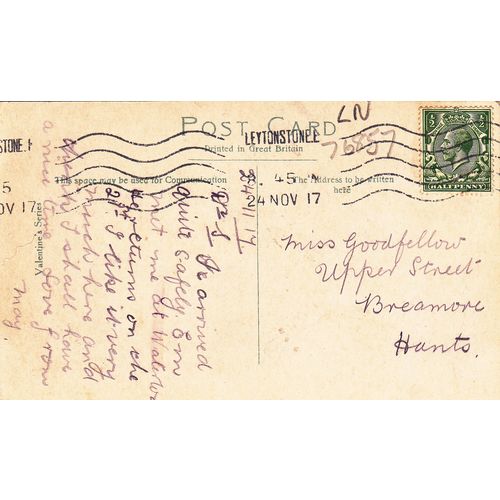 LN
76857
POST CARD
Printed in Great Britain
LEYTONSTONE.E
45
24 NOV 17
STONE.
5
NOV 17
HALFPENNY
This space may be used for Communication
The Address to be written
here
Valentine's Series
24/11/17
I arrived
quite safely Em
met me at Waterloo
returns on the
I like it very
much here and
I shall have
a nice time Love from
May.
Miss Goodfellow
Upper Street
Breamore
Hants.